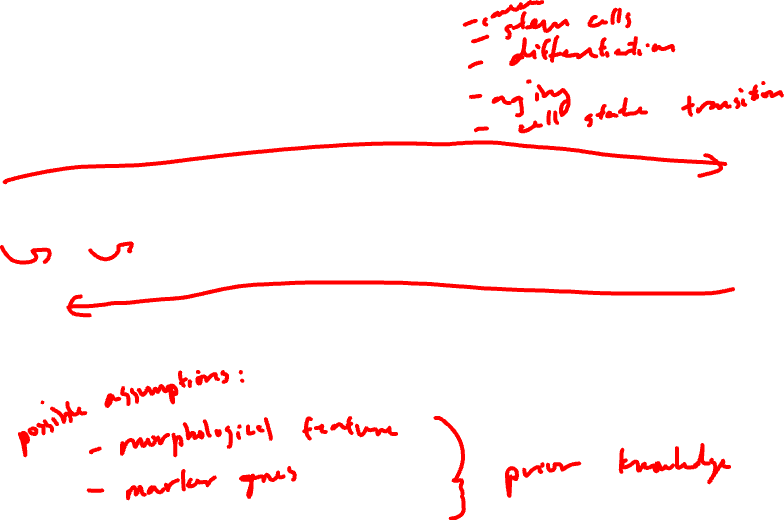 - stem cells
- differentiation
- aging
- cell state transition
possible assumptions:
- morphological feature
- marker genes
prior knowledge